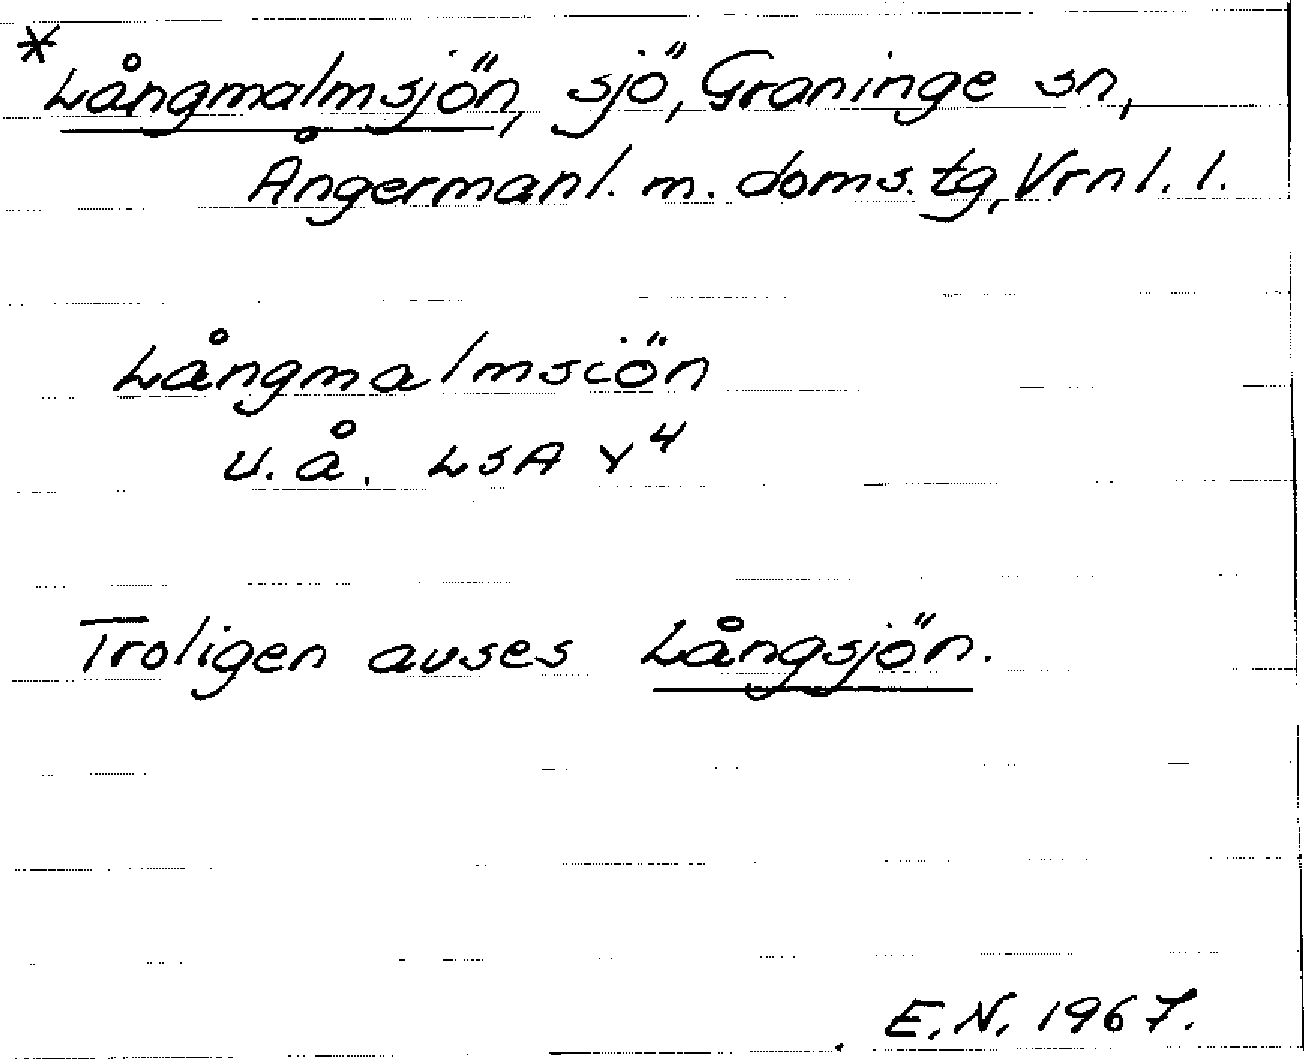 *Långmalmsjön, sjö, Graninge sn,
Ångermanl. m. doms. tg, Vrnl. l.
Långmalmsiön
u.å. LSA Y⁴
Troligen avses Långsjön.
E.N. 1967.